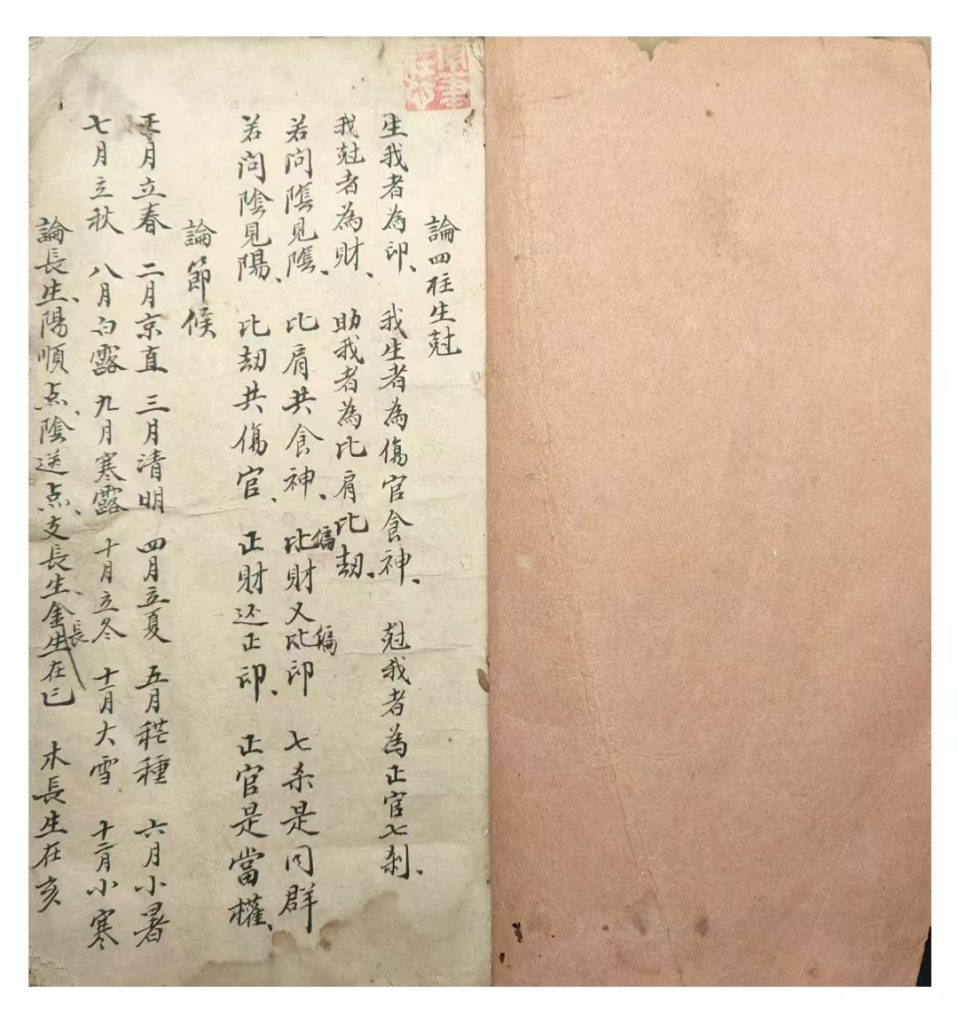 論四柱生尅
生我者為印、我生者為傷官食神、尅我者為正官七刹、
我尅者為財、助我者為比肩比劫、
若问陰見陰、比肩共食神、偏財又偏印 七杀是同群
若问陰見陽、比劫共傷官、正財还正印、正官是當權、
論節候
正月立春 二月京直 三月清明 四月立夏 五月秐種 六月小暑
七月立秋 八月白露 九月寒露 十月立冬 十一月大雪 十二月小寒
論長生、陽順点、陰送点、支長生、金長生在巳 木長生在亥